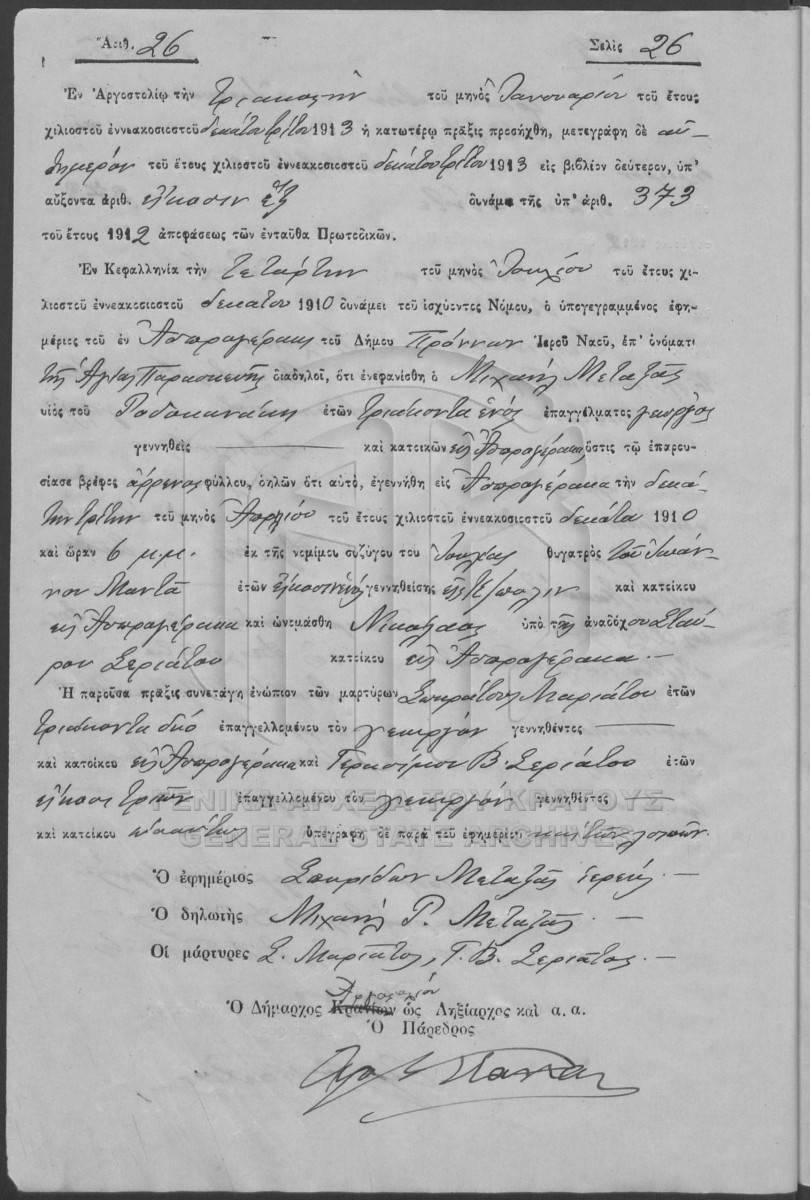 Ἀριθ. 26 Σελὶς 26
Ἐν Ἀργοστολίῳ τὴν τριακοστὴν τοῦ μηνὸς Ἰανουαρίου τοῦ ἔτους
χιλιοστοῦ ἐννεακοσιοστοῦ δεκάτου τρίτου 1913 ἡ κατωτέρω πρᾶξις προσήχθη, μετεγράφη δὲ αὐ-
θημερὸν τοῦ ἔτους χιλιοστοῦ ἐννεακοσιοστοῦ δεκάτου τρίτου 1913 εἰς βιβλίον δεύτερον, ὑπ'
αὔξοντα ἀριθ. εἴκοσιν ἓξ δυνάμει τῆς ὑπ' ἀριθ. 373
τοῦ ἔτους 1912 ἀποφάσεως τῶν ἐνταῦθα Πρωτοδικῶν.
Ἐν Κεφαλληνίᾳ τὴν τετάρτην τοῦ μηνὸς Ἰουλίου τοῦ ἔτους χι-
λιοστοῦ ἐννεακοσιοστοῦ δεκάτου 1910 δυνάμει τοῦ ἰσχύοντος Νόμου, ὁ ὑπογεγραμμένος ἐφη-
μέριος τοῦ ἐν Ἀσπρογέρακα τοῦ Δήμου Πρόννων Ἱεροῦ Ναοῦ, ἐπ' ὀνόματι
τῆς Ἁγίας Παρασκευῆς διαδηλοῖ, ὅτι ἐνεφανίσθη ὁ Μιχαὴλ Μεταξᾶς
υἱὸς τοῦ Ροδοκανάκη ἐτῶν τριάκοντα ἑνὸς ἐπαγγέλματος γεωργὸς
γεννηθεὶς καὶ κατοικῶν εἰς Ἀσπρογέρακα ὅστις τῷ ἐπαρου-
σίασε βρέφος ἄρρενος φύλλου, δηλῶν ὅτι αὐτό, ἐγεννήθη εἰς Ἀσπρογέρακα τὴν δεκά-
την τρίτην τοῦ μηνὸς Ἀπριλίου τοῦ ἔτους χιλιοστοῦ ἐννεακοσιοστοῦ δεκάτου 1910
καὶ ὥραν 6 μ.μ. ἐκ τῆς νομίμου συζύγου του Ἰουλίας θυγατρὸς τοῦ Ἰωάν-
νου Μαντᾶ ἐτῶν γεννηθείσης εἰς καὶ κατοίκου
εἰς Ἀσπρογέρακα καὶ ὠνομάσθη Νικόλαος ὑπὸ τοῦ ἀναδόχου Σταύ-
ρου Σεριάτου κατοίκου εἰς Ἀσπρογέρακα.
Ἡ παροῦσα πρᾶξις συνετάγη ἐνώπιον τῶν μαρτύρων Σωκράτους Μαριάτου ἐτῶν
τριάκοντα δύο ἐπαγγελλομένου τὸν γεωργὸν γεννηθέντος
καὶ κατοίκου εἰς Ἀσπρογέρακα καὶ Γερασίμου Β. Σεριάτου ἐτῶν
εἴκοσι τριῶν ἐπαγγελλομένου τὸν γεωργὸν γεννηθέντος
καὶ κατοίκου ὡσαύτως ὑπεγράφη δὲ παρὰ τοῦ ἐφημερίου καὶ τῶν λοιπῶν.
ΓΕΝΙΚΑ ΑΡΧΕΙΑ ΤΟΥ ΚΡΑΤΟΥΣ
GENERAL STATE ARCHIVES
Ὁ ἐφημέριος Σπυρίδων Μεταξᾶς ἱερεύς.
Ὁ δηλωτὴς Μιχαὴλ Ρ. Μεταξᾶς.
Οἱ μάρτυρες Σ. Μαριάτος, Γ. Β. Σεριάτος.
Ἀργοστολίου
Ὁ Δήμαρχος Κρανίων ὡς Ληξίαρχος καὶ α. α.
Ὁ Πάρεδρος